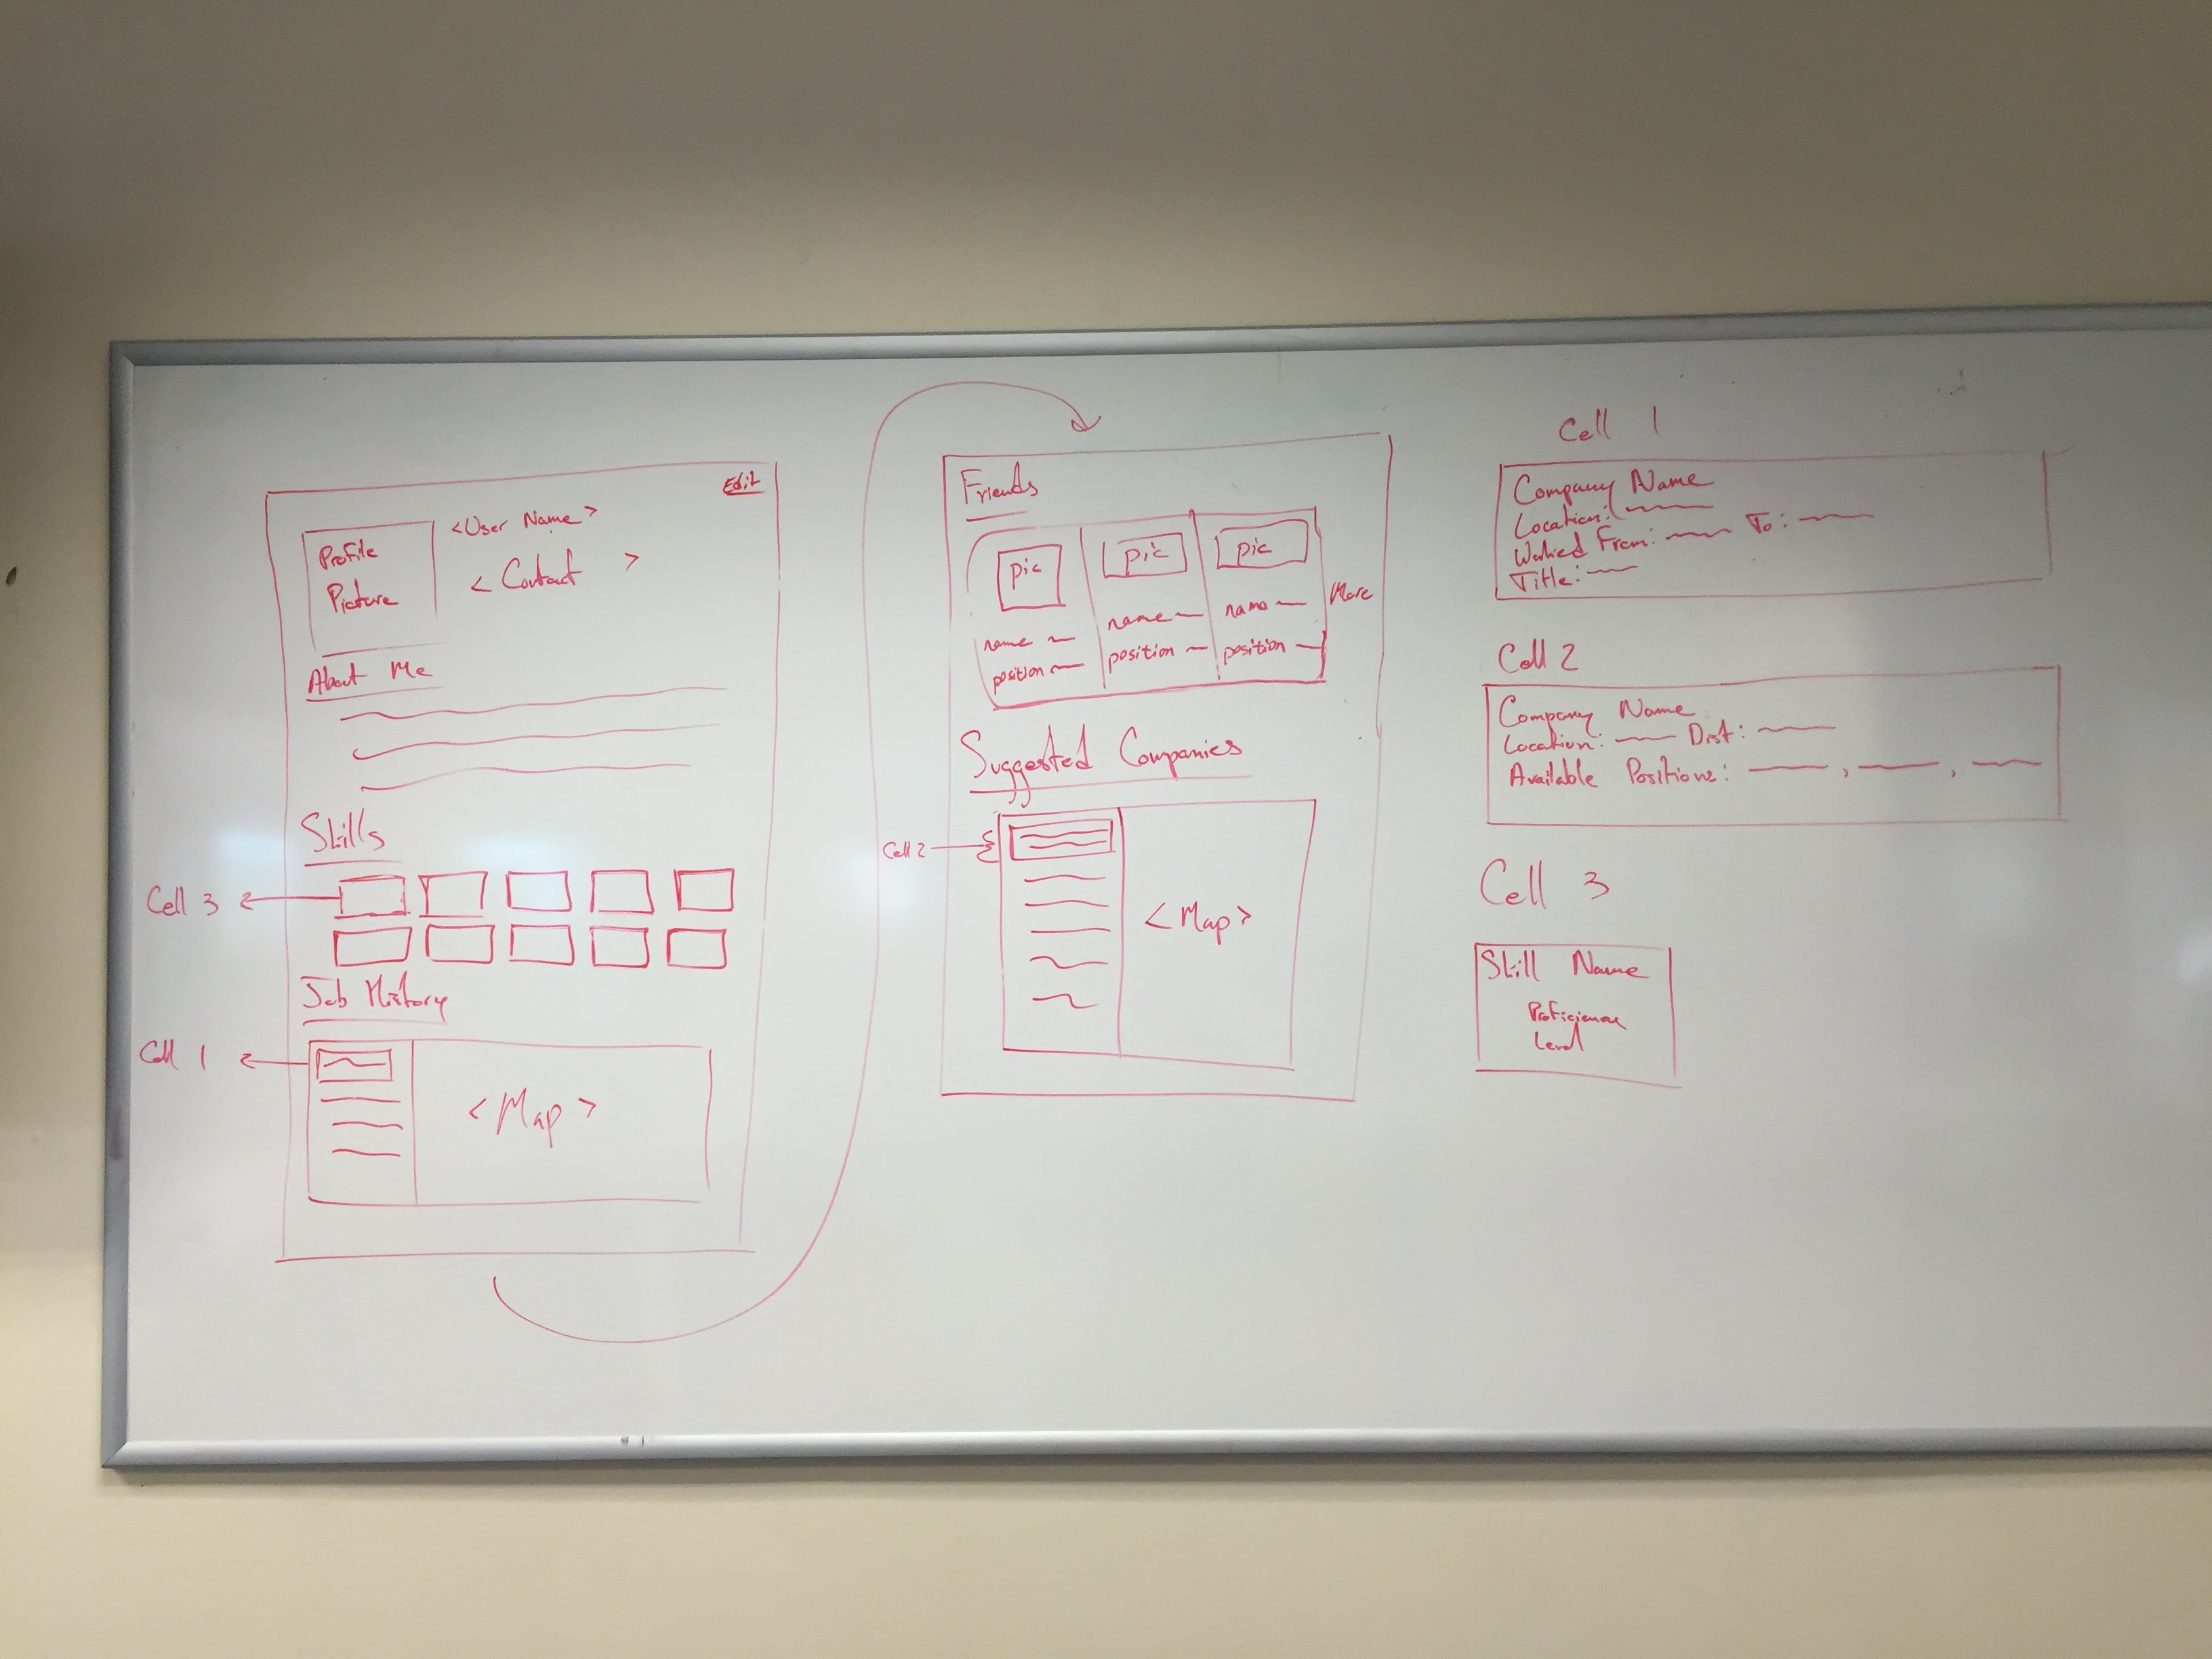 Edit
Profile
Picture
<User Name>
< Contact >
About Me
Skills
Cell 3
Job History
Cell 1
<Map>
Friends
pic
name
position
pic
name
position
pic
name
position
More
Suggested Companies
Cell 2
<Map>
Cell 1
Company Name
Location:
Worked From: To:
Title:
Cell 2
Company Name
Location: Dist:
Available Positions: , ,
Cell 3
Skill Name
Proficiency
Level